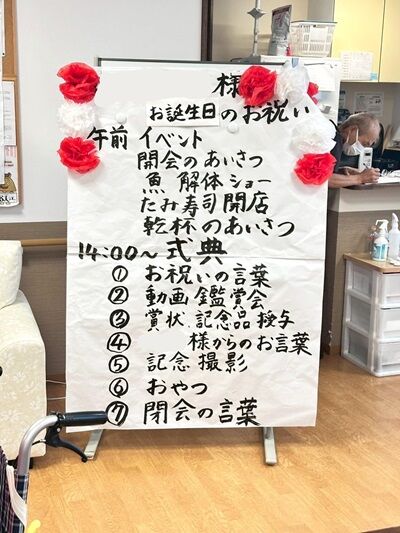 様
お誕生日のお祝い
午前 イベント
開会のあいさつ
魚 解体ショー
たみ寿司開店
乾杯のあいさつ
14:00~式典
① お祝いの言葉
② 動画鑑賞会
③ 賞状、記念品授与
④ 様からのお言葉
⑤ 記念撮影
⑥ おやつ
⑦ 閉会の言葉